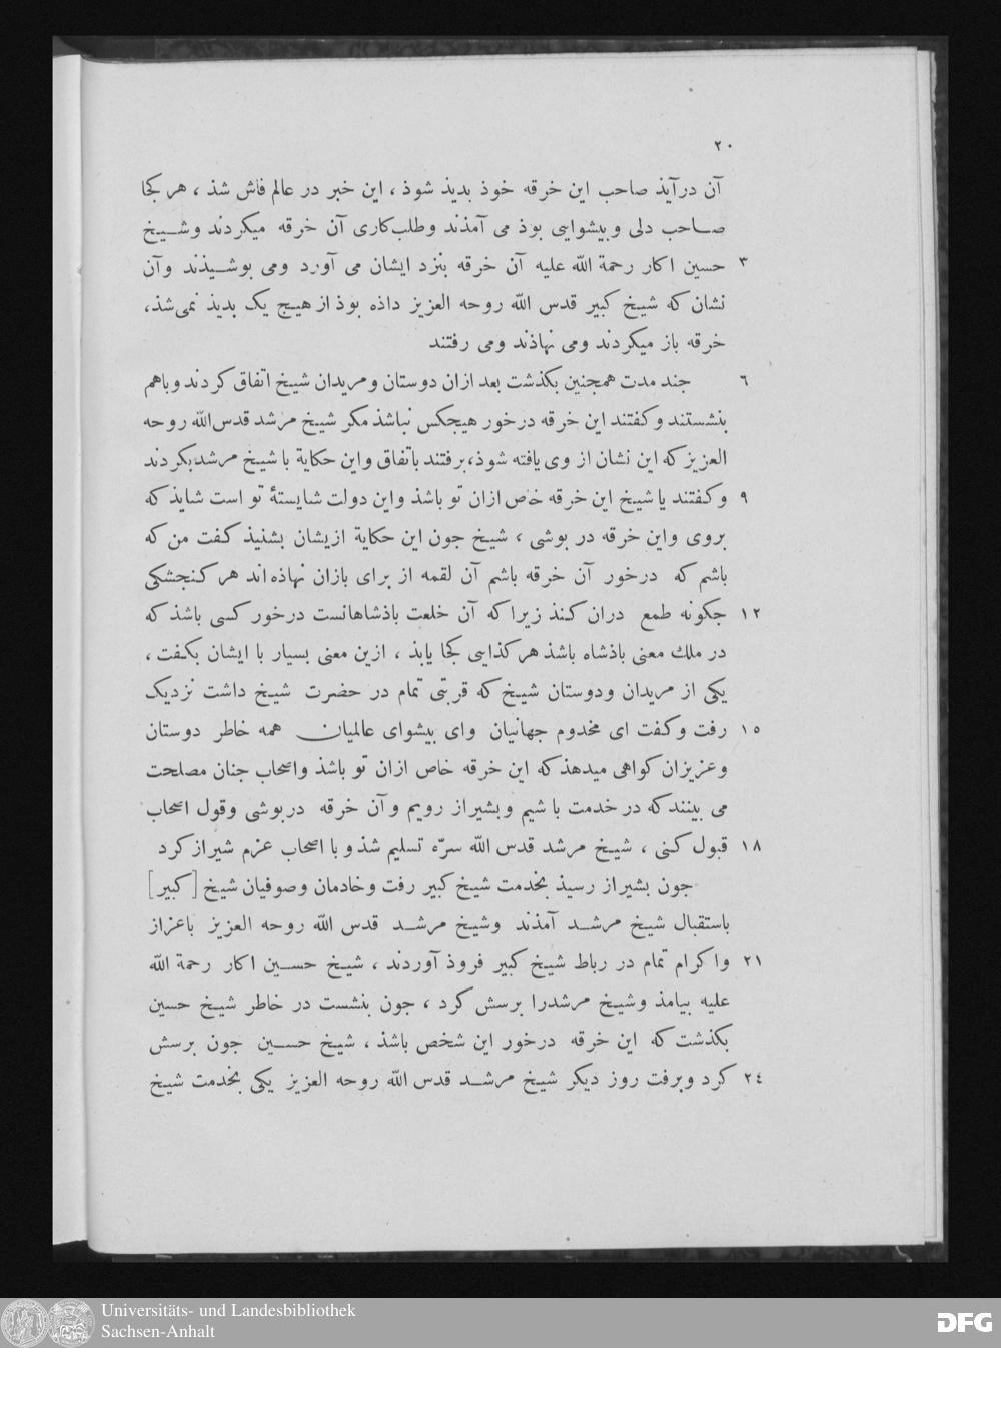 ٢٠
آن درآیذ صاحب این خرقه خوذ بدیذ شوذ ، این خبر در عالم فاش شذ ، هر کجا
صاحب دلی وبیشوایی بوذ می آمذند وطلب‌کاری آن خرقه میکردند وشیخ
٣ حسین اکار رحمة الله علیه آن خرقه بنزد ایشان می آورد ومی بوشیذند وآن
نشان که شیخ کبیر قدس الله روحه العزیز داذه بوذ از هیچ یک بدیذ نمی‌شذ،
خرقه باز میکردند ومی نهاذند ومی رفتند
٦ جند مدت همجنین بکذشت بعد ازان دوستان ومریدان شیخ اتفاق کردند وباهم
بنشستند وکفتند این خرقه درخور هیجکس نباشذ مکر شیخ مرشد قدس الله روحه
العزیز که این نشان از وی یافته شوذ، برفتند باتفاق واین حکایة با شیخ مرشد بکردند
٩ وکفتند یا شیخ این خرقه خاص ازان تو باشذ واین دولت شایستهٔ تو است شایذ که
بروی واین خرقه در بوشی ، شیخ جون این حکایة ازیشان بشنیذ کفت من که
باشم که درخور آن خرقه باشم آن لقمه از برای بازان نهاذه‌اند هر کنجشکی
١٢ جکونه طمع دران کنذ زیرا که آن خلعت باذشاهانست درخور کسی باشذ که
در ملك معنی باذشاه باشذ هر کذایی کجا یابذ ، ازین معنی بسیار با ایشان بکفت ،
یکی از مریدان ودوستان شیخ که قربتی تمام در حضرت شیخ داشت نزدیک
١٥ رفت وکفت ای مخدوم جهانیان وای بیشوای عالمیان همه خاطر دوستان
وعزیزان کواهی میدهذ که این خرقه خاص ازان تو باشذ واصحاب جنان مصلحت
می بینند که در خدمت باشیم وبشیراز رویم وآن خرقه دربوشی وقول اصحاب
١٨ قبول کنی ، شیخ مرشد قدس الله سرّه تسلیم شذ و با اصحاب عزم شیراز کرد
جون بشیراز رسیذ بخدمت شیخ کبیر رفت وخادمان وصوفیان شیخ [کبیر]
باستقبال شیخ مرشد آمذند وشیخ مرشد قدس الله روحه العزیز باعزاز
٢١ واکرام تمام در رباط شیخ کبیر فروذ آوردند ، شیخ حسین اکار رحمة الله
علیه بیامذ وشیخ مرشدرا برسش کرد ، جون بنشست در خاطر شیخ حسین
بکذشت که این خرقه درخور این شخص باشذ ، شیخ حسین جون برسش
٢٤ کرد وبرفت روز دیکر شیخ مرشد قدس الله روحه العزیز یکی بخدمت شیخ
Universitäts- und Landesbibliothek
Sachsen-Anhalt
DFG